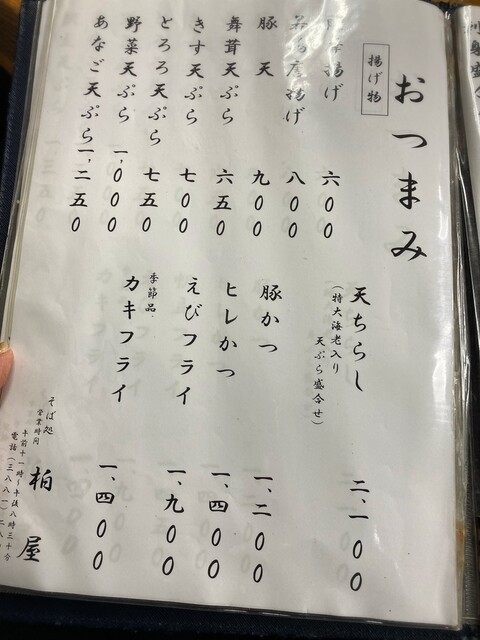 おつまみ
揚げ物
揚げ 六〇〇
揚げ 八〇〇
豚天 九〇〇
舞茸天ぷら 六五〇
きす天ぷら 七〇〇
とろろ天ぷら 七五〇
野菜天ぷら 一、〇〇〇
あなご天ぷら 一、二五〇
天ちらし 二、一〇〇
(特大海老入り
天ぷら盛合せ)
豚かつ 一、二〇〇
ヒレかつ 一、四〇〇
えびフライ 一、九〇〇
季節品・
カキフライ 一、四〇〇
そば処 柏屋
営業時間
午前十一時~午後八時三十分
電話(三八八一)